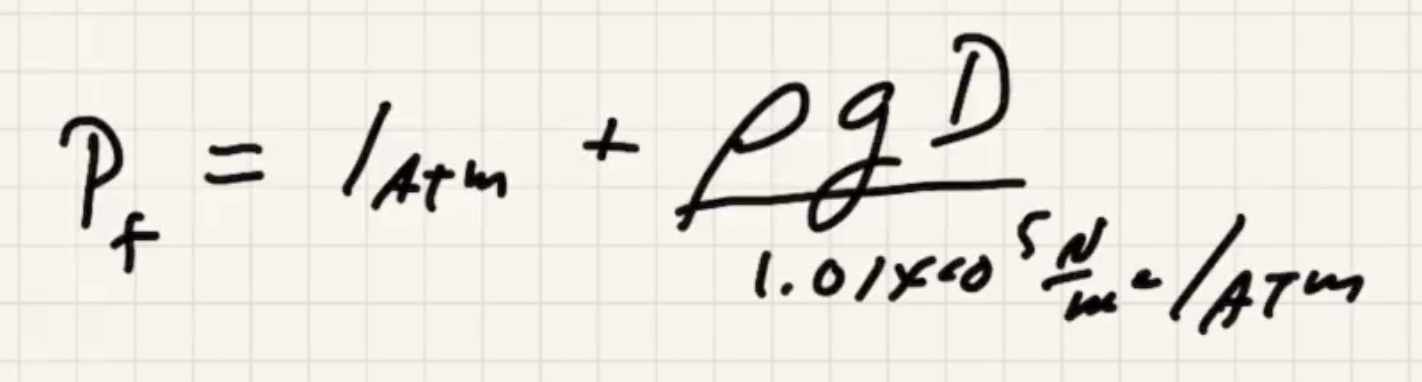 P_f = 1 Atm + ρ g D
1.01 x 10^5 N/m² / ATm